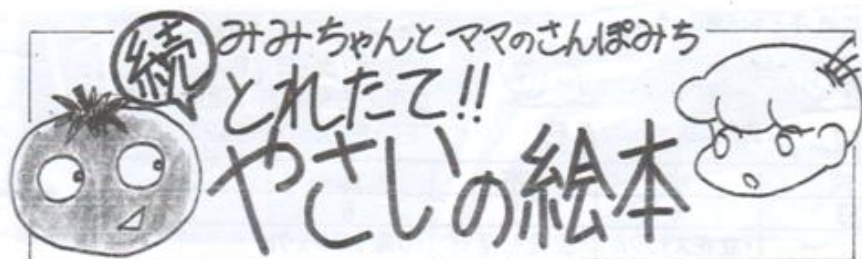 続
みみちゃんとママのさんぽみち
とれたて!!
やさいの絵本